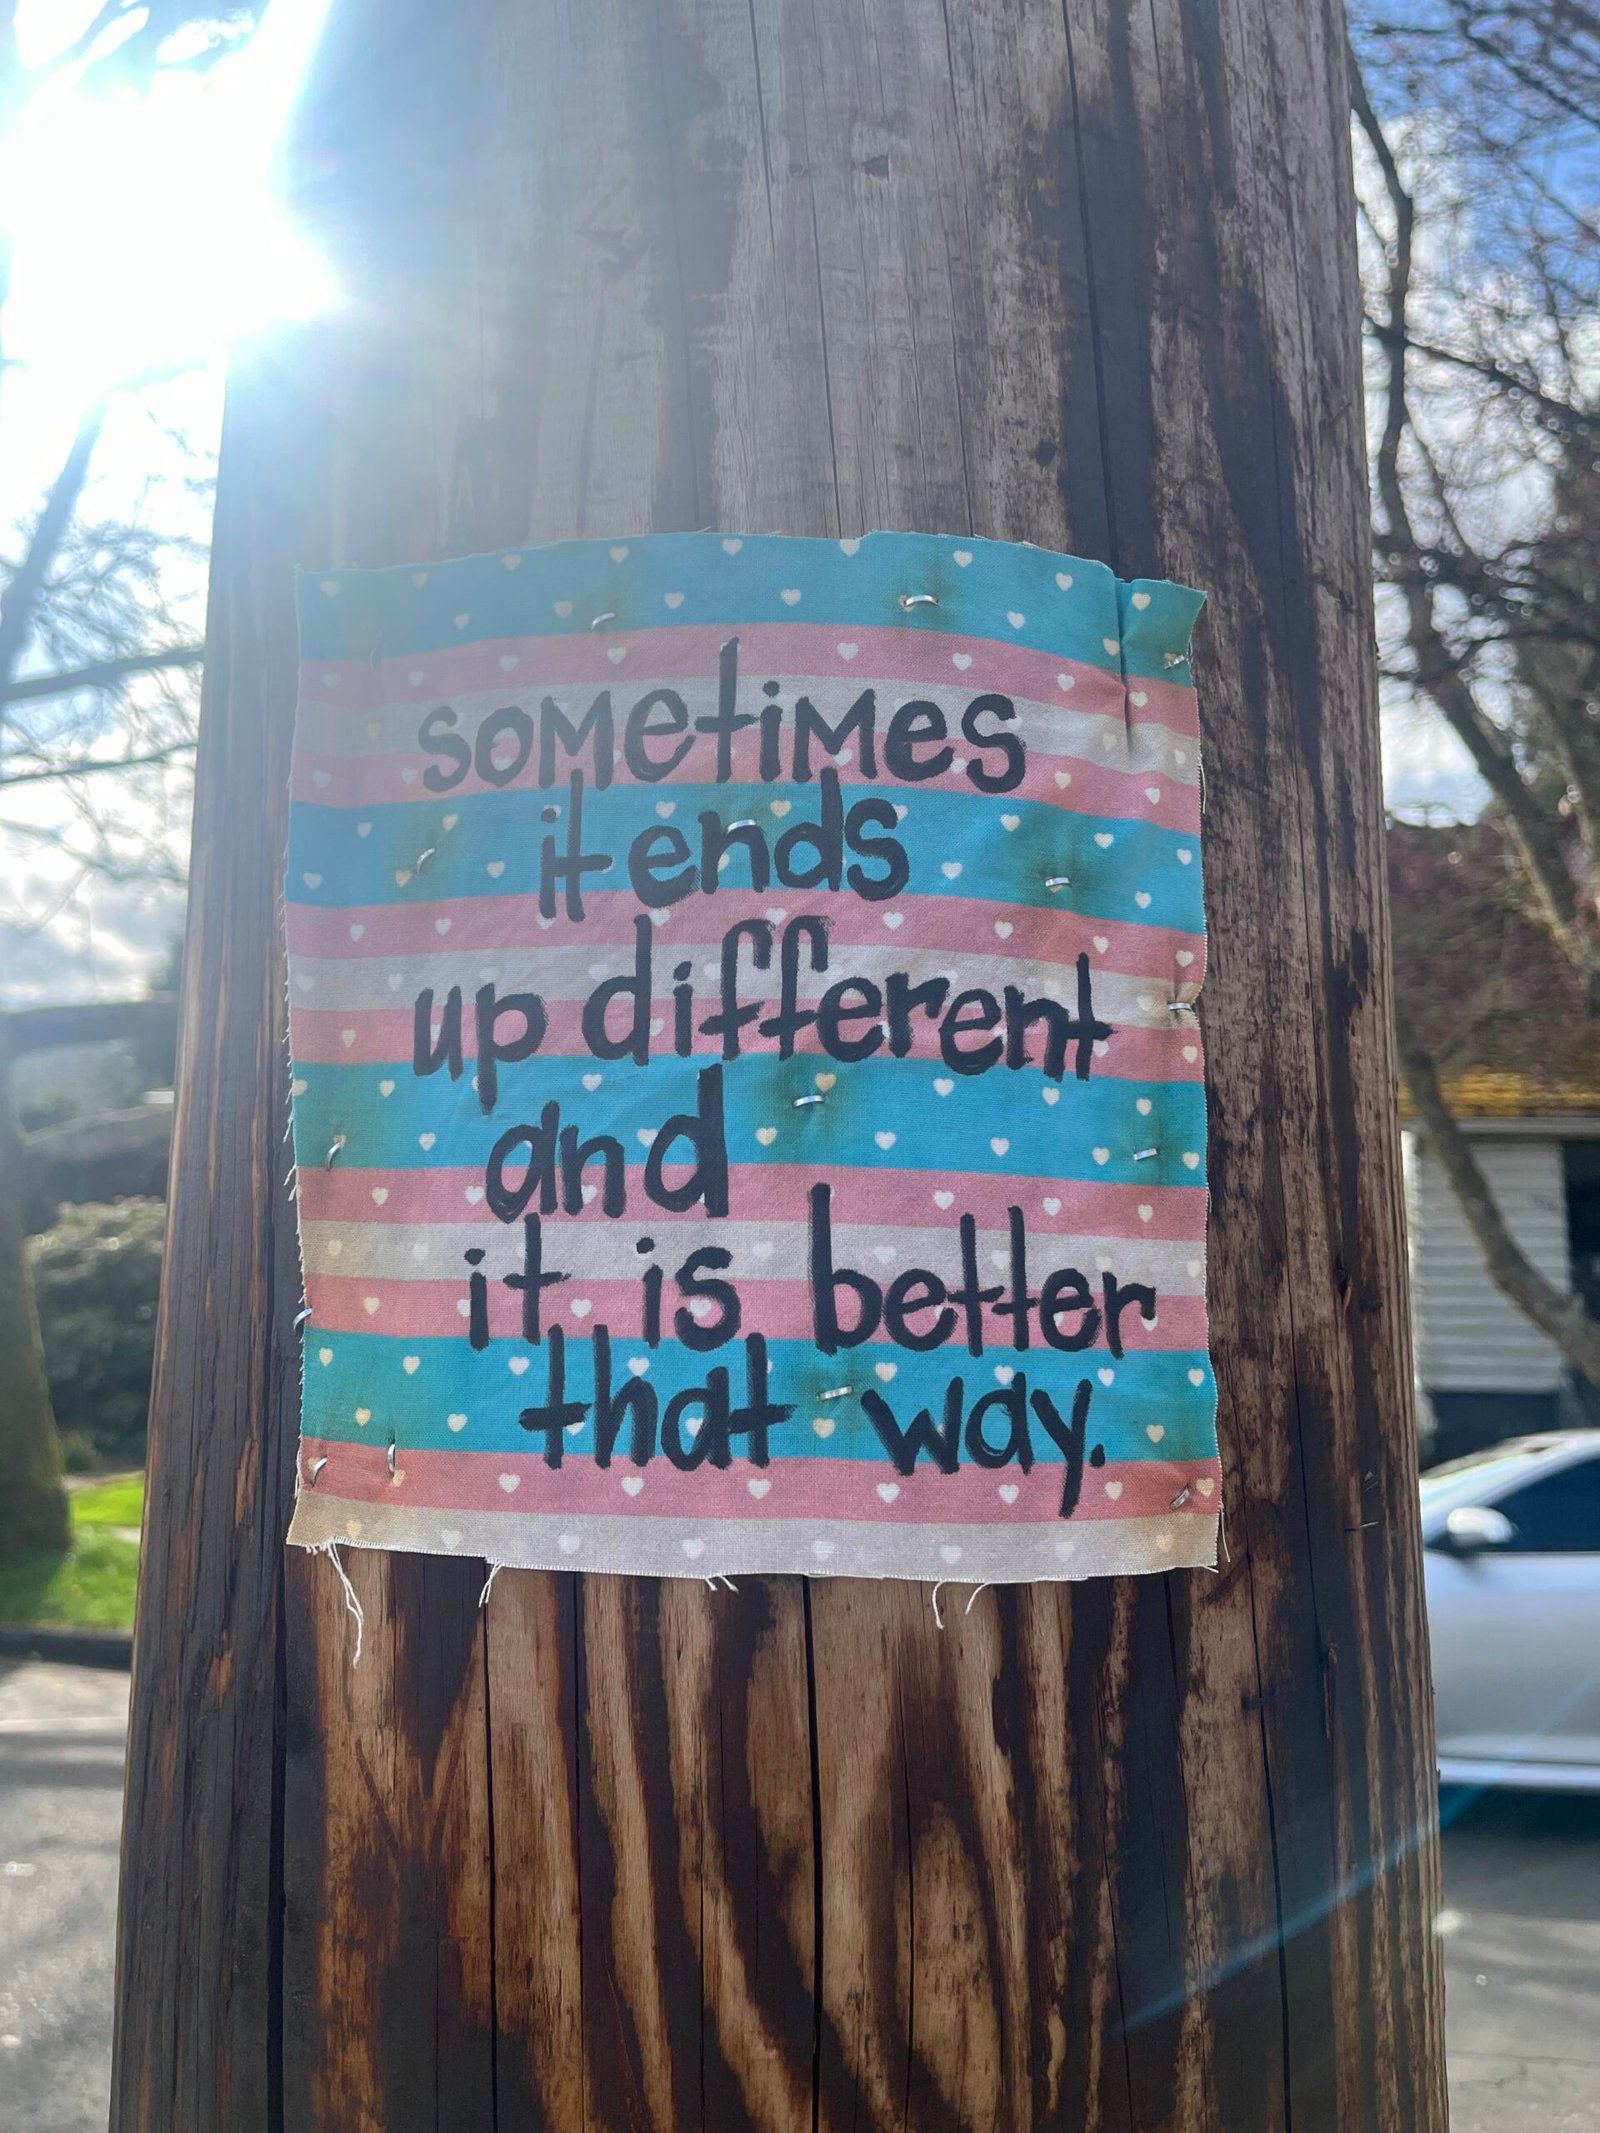 sometimes
it ends
up different
and
it is better
that way.